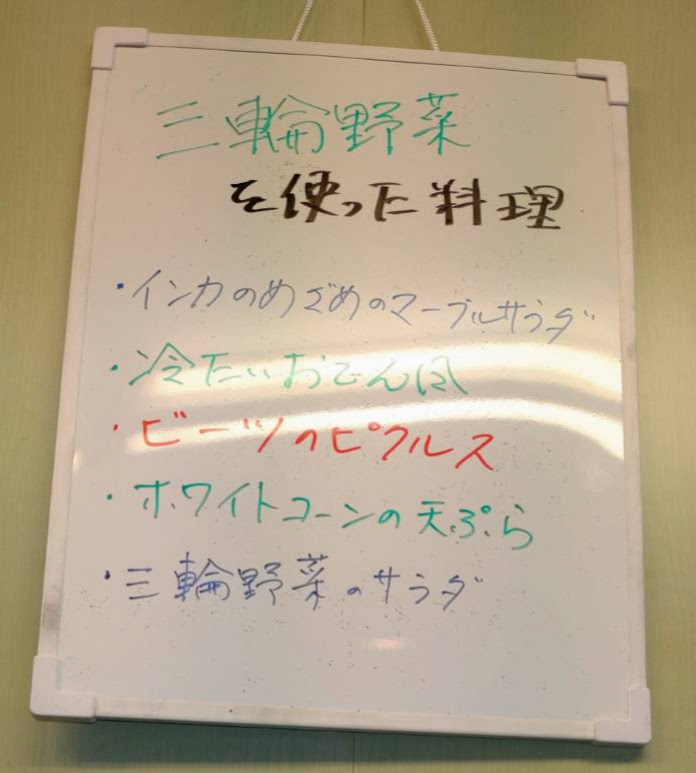 三輪野菜
を使った料理
・インカのめざめのマーブルサラダ
・冷たいおでん風
・ビーツのピクルス
・ホワイトコーンの天ぷら
・三輪野菜のサラダ